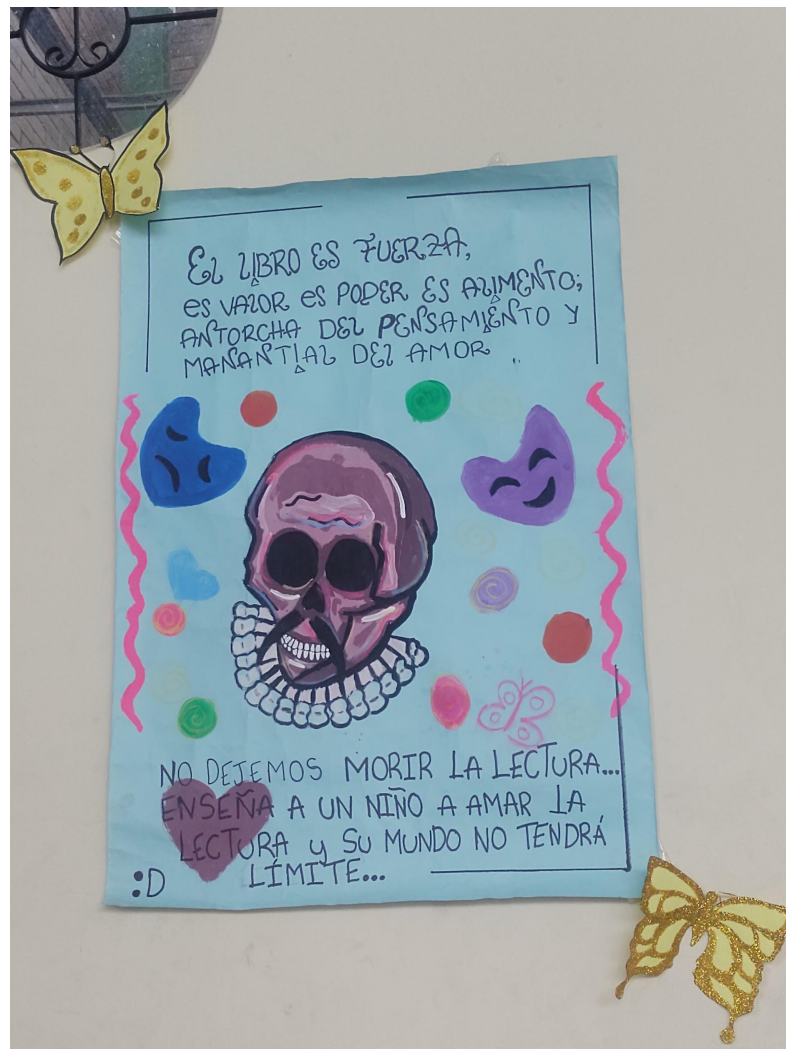 El LIBRO ES FUERZA,
es VALOR es PODER ES ALIMENTO;
ANTORCHA DEL PENSAMIENTO Y
MANANTIAL DEL AMOR ..
NO DEJEMOS MORIR LA LECTURA...
ENSEÑA A UN NIÑO A AMAR LA
LECTURA y SU MUNDO NO TENDRÁ
LÍMITE...
:D